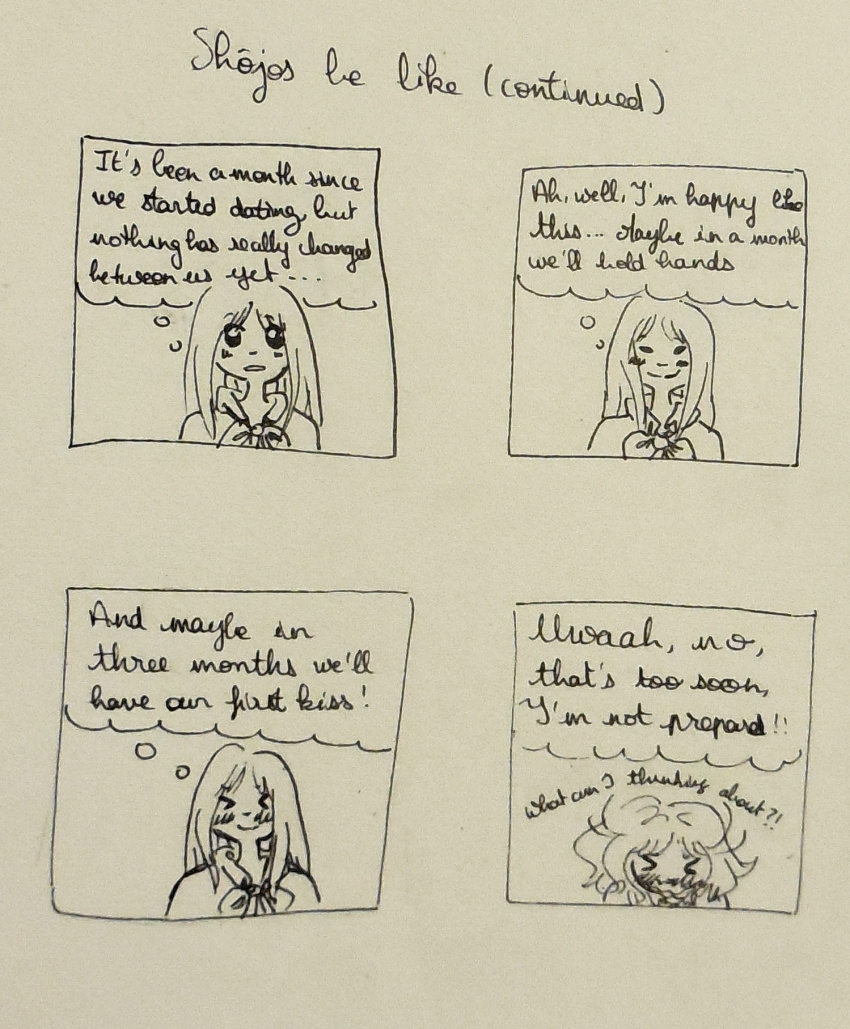 Shōjos be like (continued)
It's been a month since
we started dating, but
nothing has really changed
between us yet ...
Ah, well, I'm happy like
this... Maybe in a month
we'll hold hands
And maybe in
three months we'll
have our first kiss!
Uwaah, no,
that's too soon,
I'm not prepared!!
What am I thinking about?!